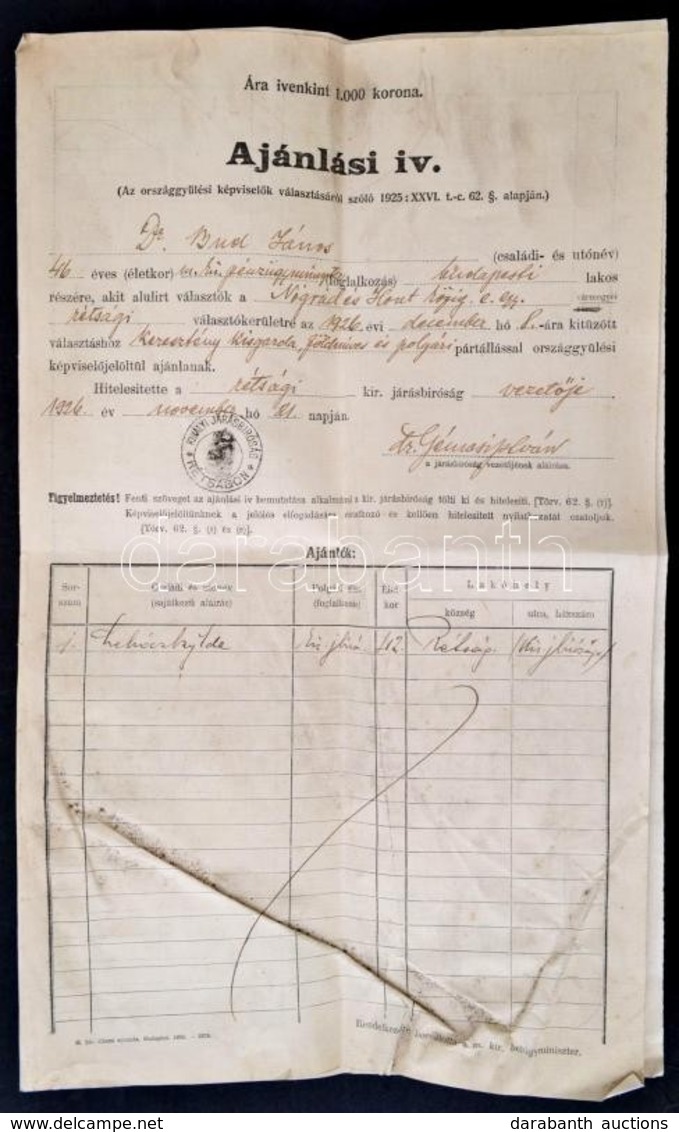 Ára ivenkint 1.000 korona.
Ajánlási iv.
(Az országgyülési képviselők választásáról szóló 1925 : XXVI. t.-c. 62. §. alapján.)
Dr Bud János (családi- és utónév)
46 éves (életkor) m. kir. pénzügyminiszter (foglalkozás) budapesti lakos
részére, akit alulirt választók a Nógrád és Hont közig. e. egy. vármegyei
rétsági választókerületre az 1926 évi december hó 8.-ára kitüzött
választáshoz Keresztény kisgazda, földmíves és polgári pártállással országgyülési
képviselőjelöltül ajánlanak.
Hitelesitette a rétsági kir. járásbiróság vezetője
1926. év november hó 21. napján.
KIRÁLYI JÁRÁSBIRÓSÁG RÉTSÁGON
Dr.
a járásbiróság vezetőjének aláirása.
Figyelmeztetés! Fenti szöveget az ajánlási iv bemutatása alkalmával a kir. járásbiróság tölti ki és hitelesiti. [Törv. 62. §. (7)].
Képviselőjelöltünknek a jelölés elfogadására vonatkozó és kellően hitelesitett nyilatkozatát csatoljuk.
[Törv. 62. §.
Ajánlók:
Sor-szám
Családi és utónév (sajátkezü aláirás)
Polgári ál. (foglalkozás)
Élet-kor
Lakóhely
község
utca, házszám
1. kir. jbiró 42. Rétság.
Rendelkezésre bocsátotta a m. kir. belügyminiszter.
darabanth
Delcampe.net
darabanth auctions